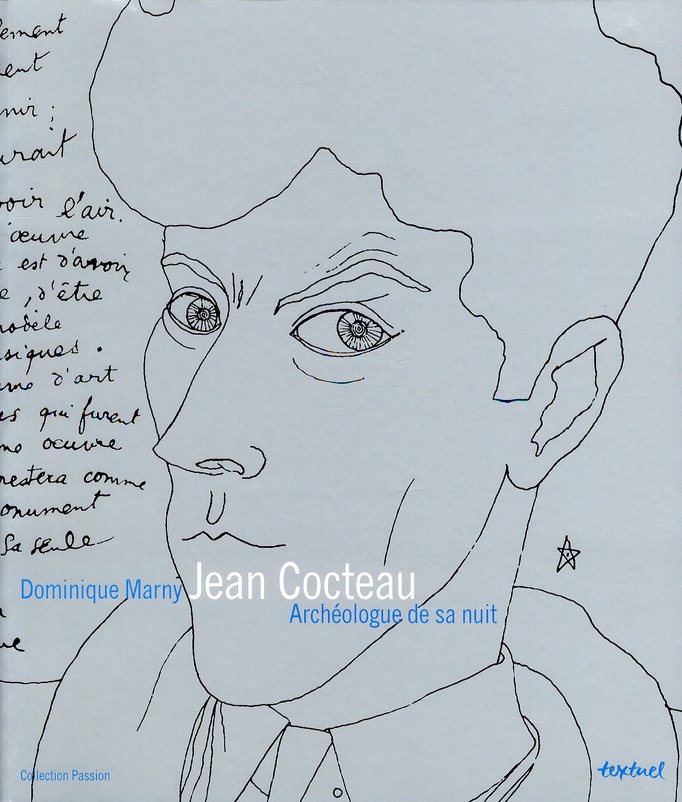 ement
ent
nir ;
urait
voir l'air.
œuvre
est d'avoir
e , d'être
modèle
siques .
d'art
qui furent
œuvre
restera comme
onument
sa seule
Dominique Marny Jean Cocteau
Archéologue de sa nuit
Collection Passion
textuel